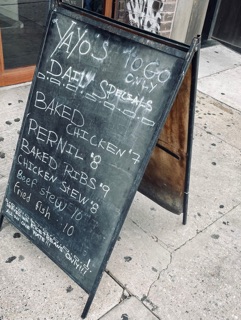 YAYO'S TO GO
ONLY
DAILY SPECIALS
BAKED
CHICKEN $7
PERNIL $8
BAKED RIBS $9
CHICKEN STEW $8
Beef stew 10
fried fish 10